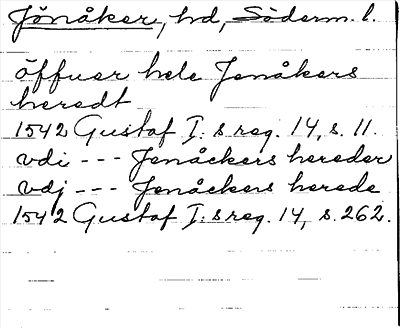 Jönåker, hd, Söderm. l.
öffuer hele Jenåkers
heredt
1542 Gustaf I:s reg. 14, s. 11.
vdi --- Jenåckers hereder
vdj --- Jenåckers herede
1542 Gustaf I:s reg. 14, s. 262.